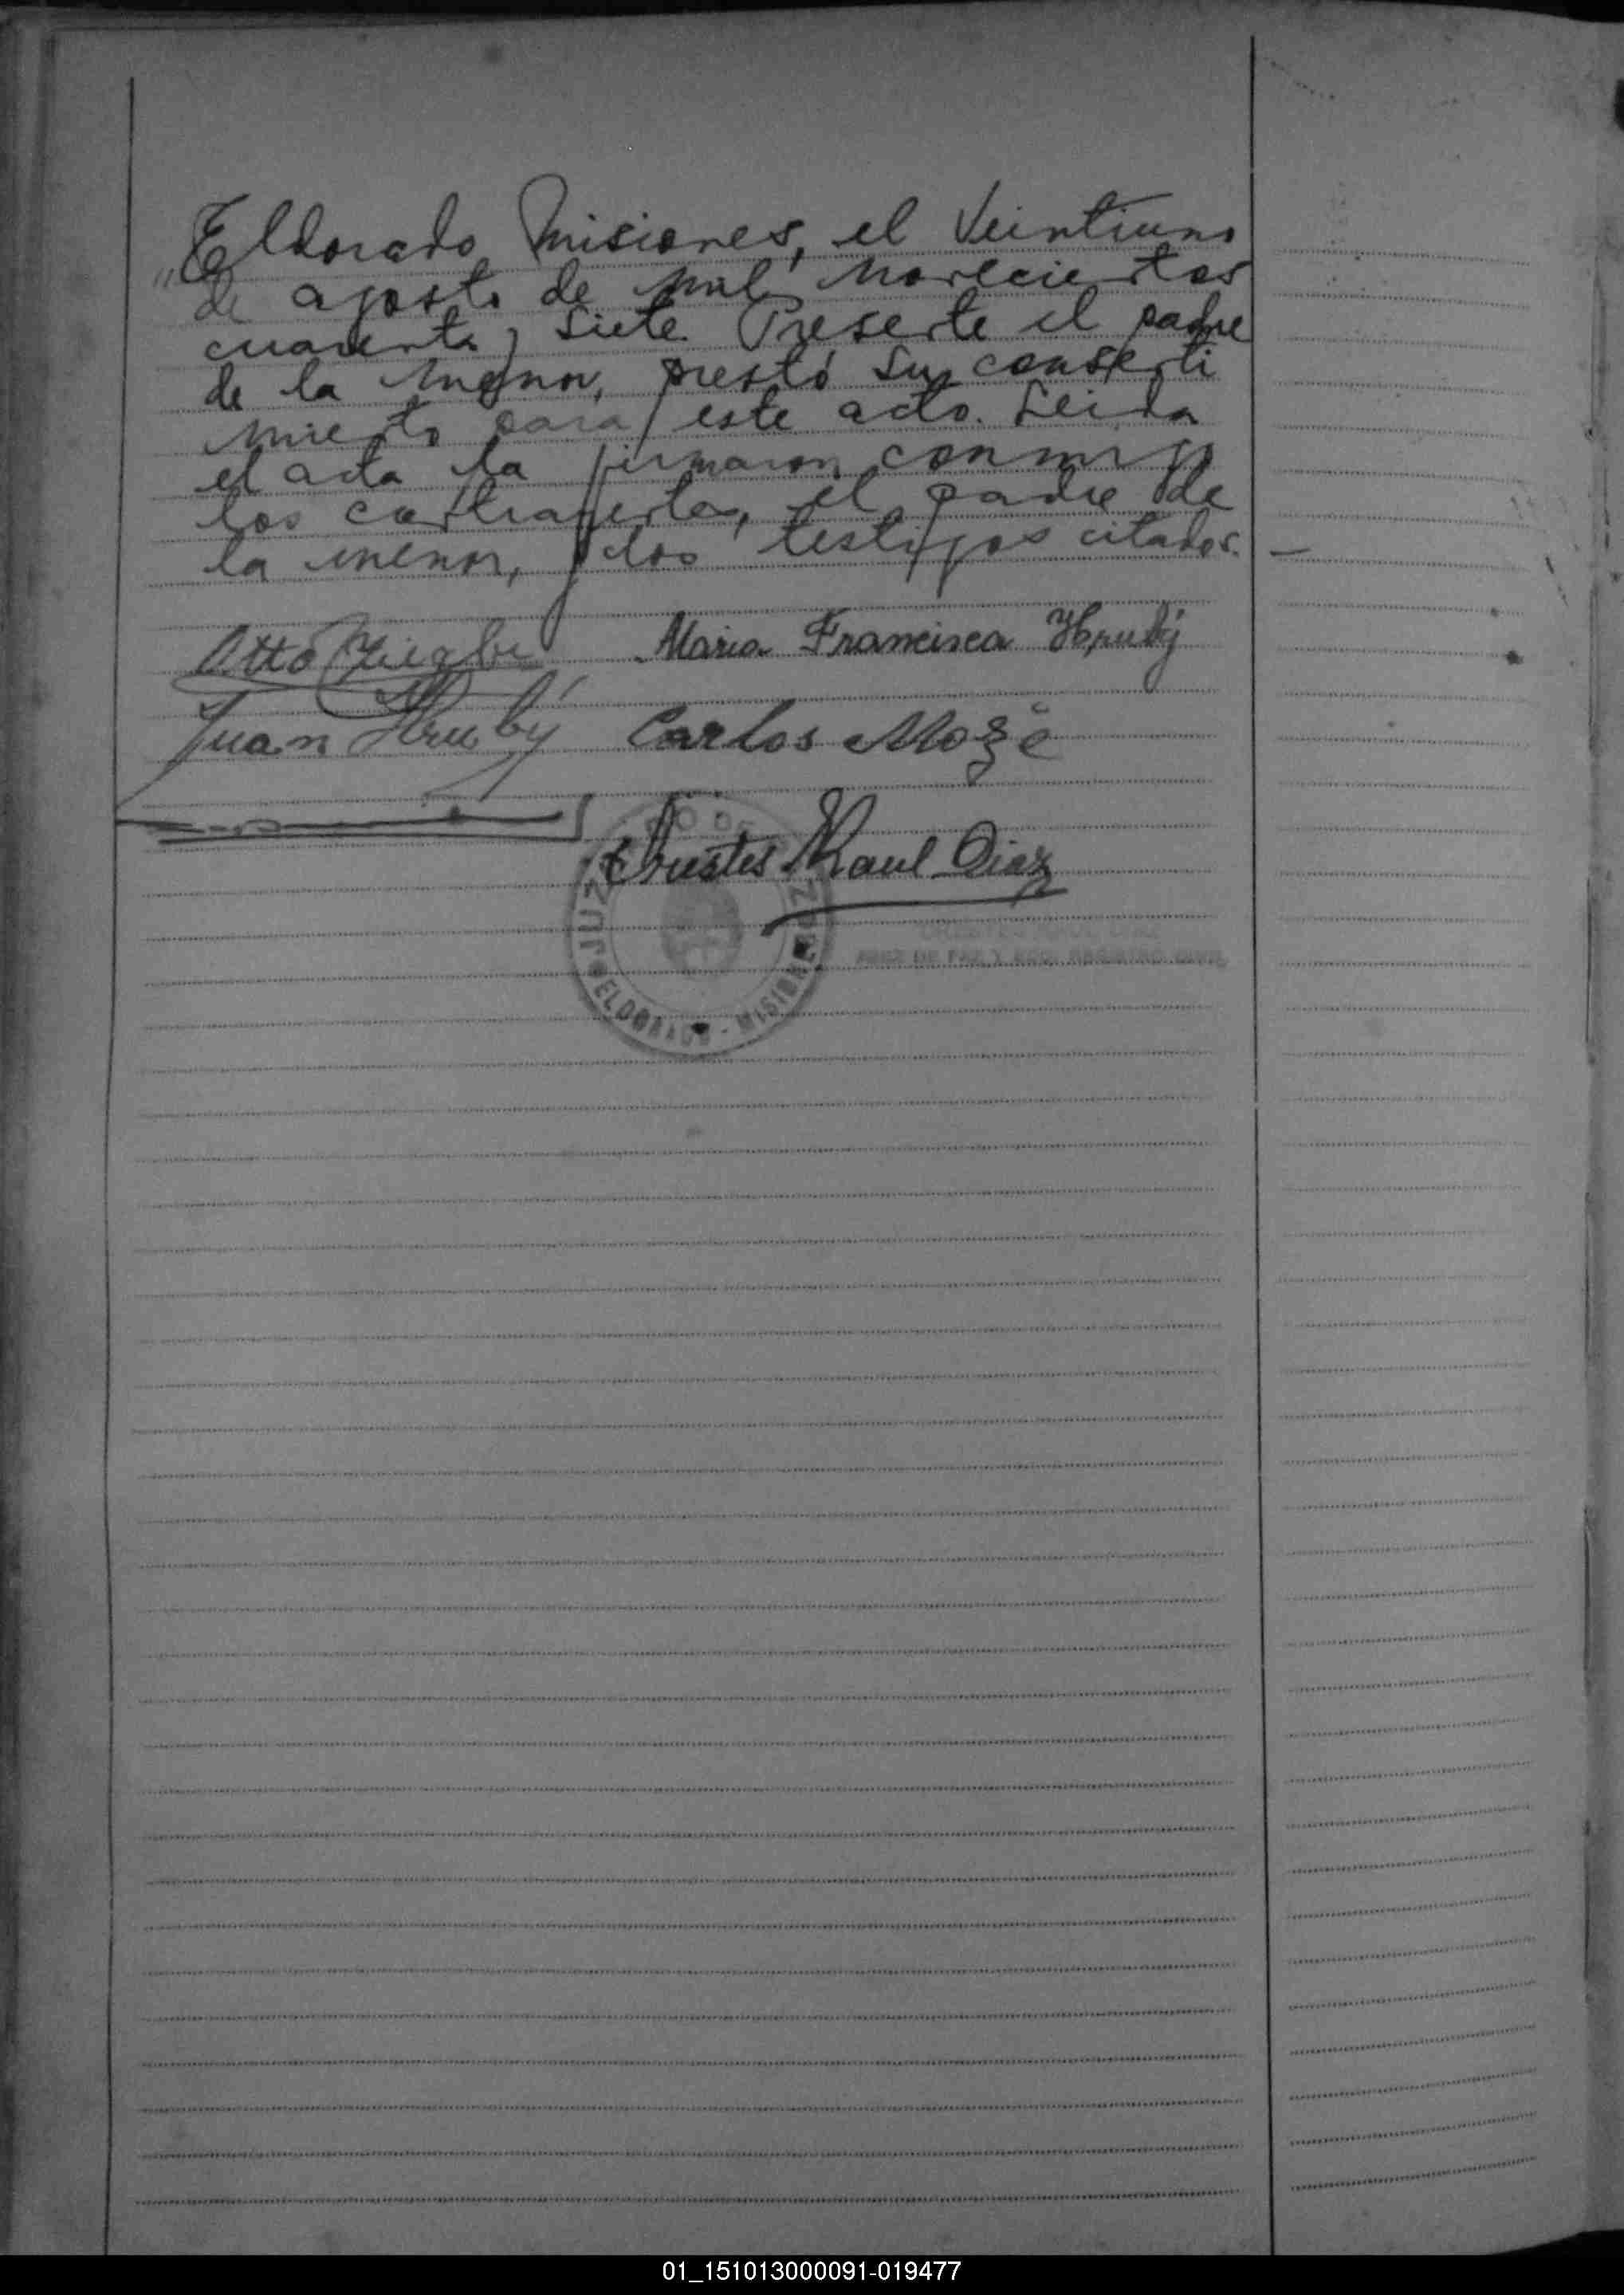 "Eldorado Misiones, el Veintiuno
de agosto de mil novecientos
cuarenta y siete. Presente el padre
de la menor, prestó su consenti
miento para este acto. Leida
el acta la firmaron conmigo
los contrayentes, el padre de
la menor, y los testigos citados. —
Otto Maria Francisca Hruby
Juan Hruby Carlos Može
Orestes Raul Diaz
JUZ DO DE
JUEZ DE PAZ Y REGISTRO CIVIL
ELDORADO - MISIONES
01_151013000091-019477